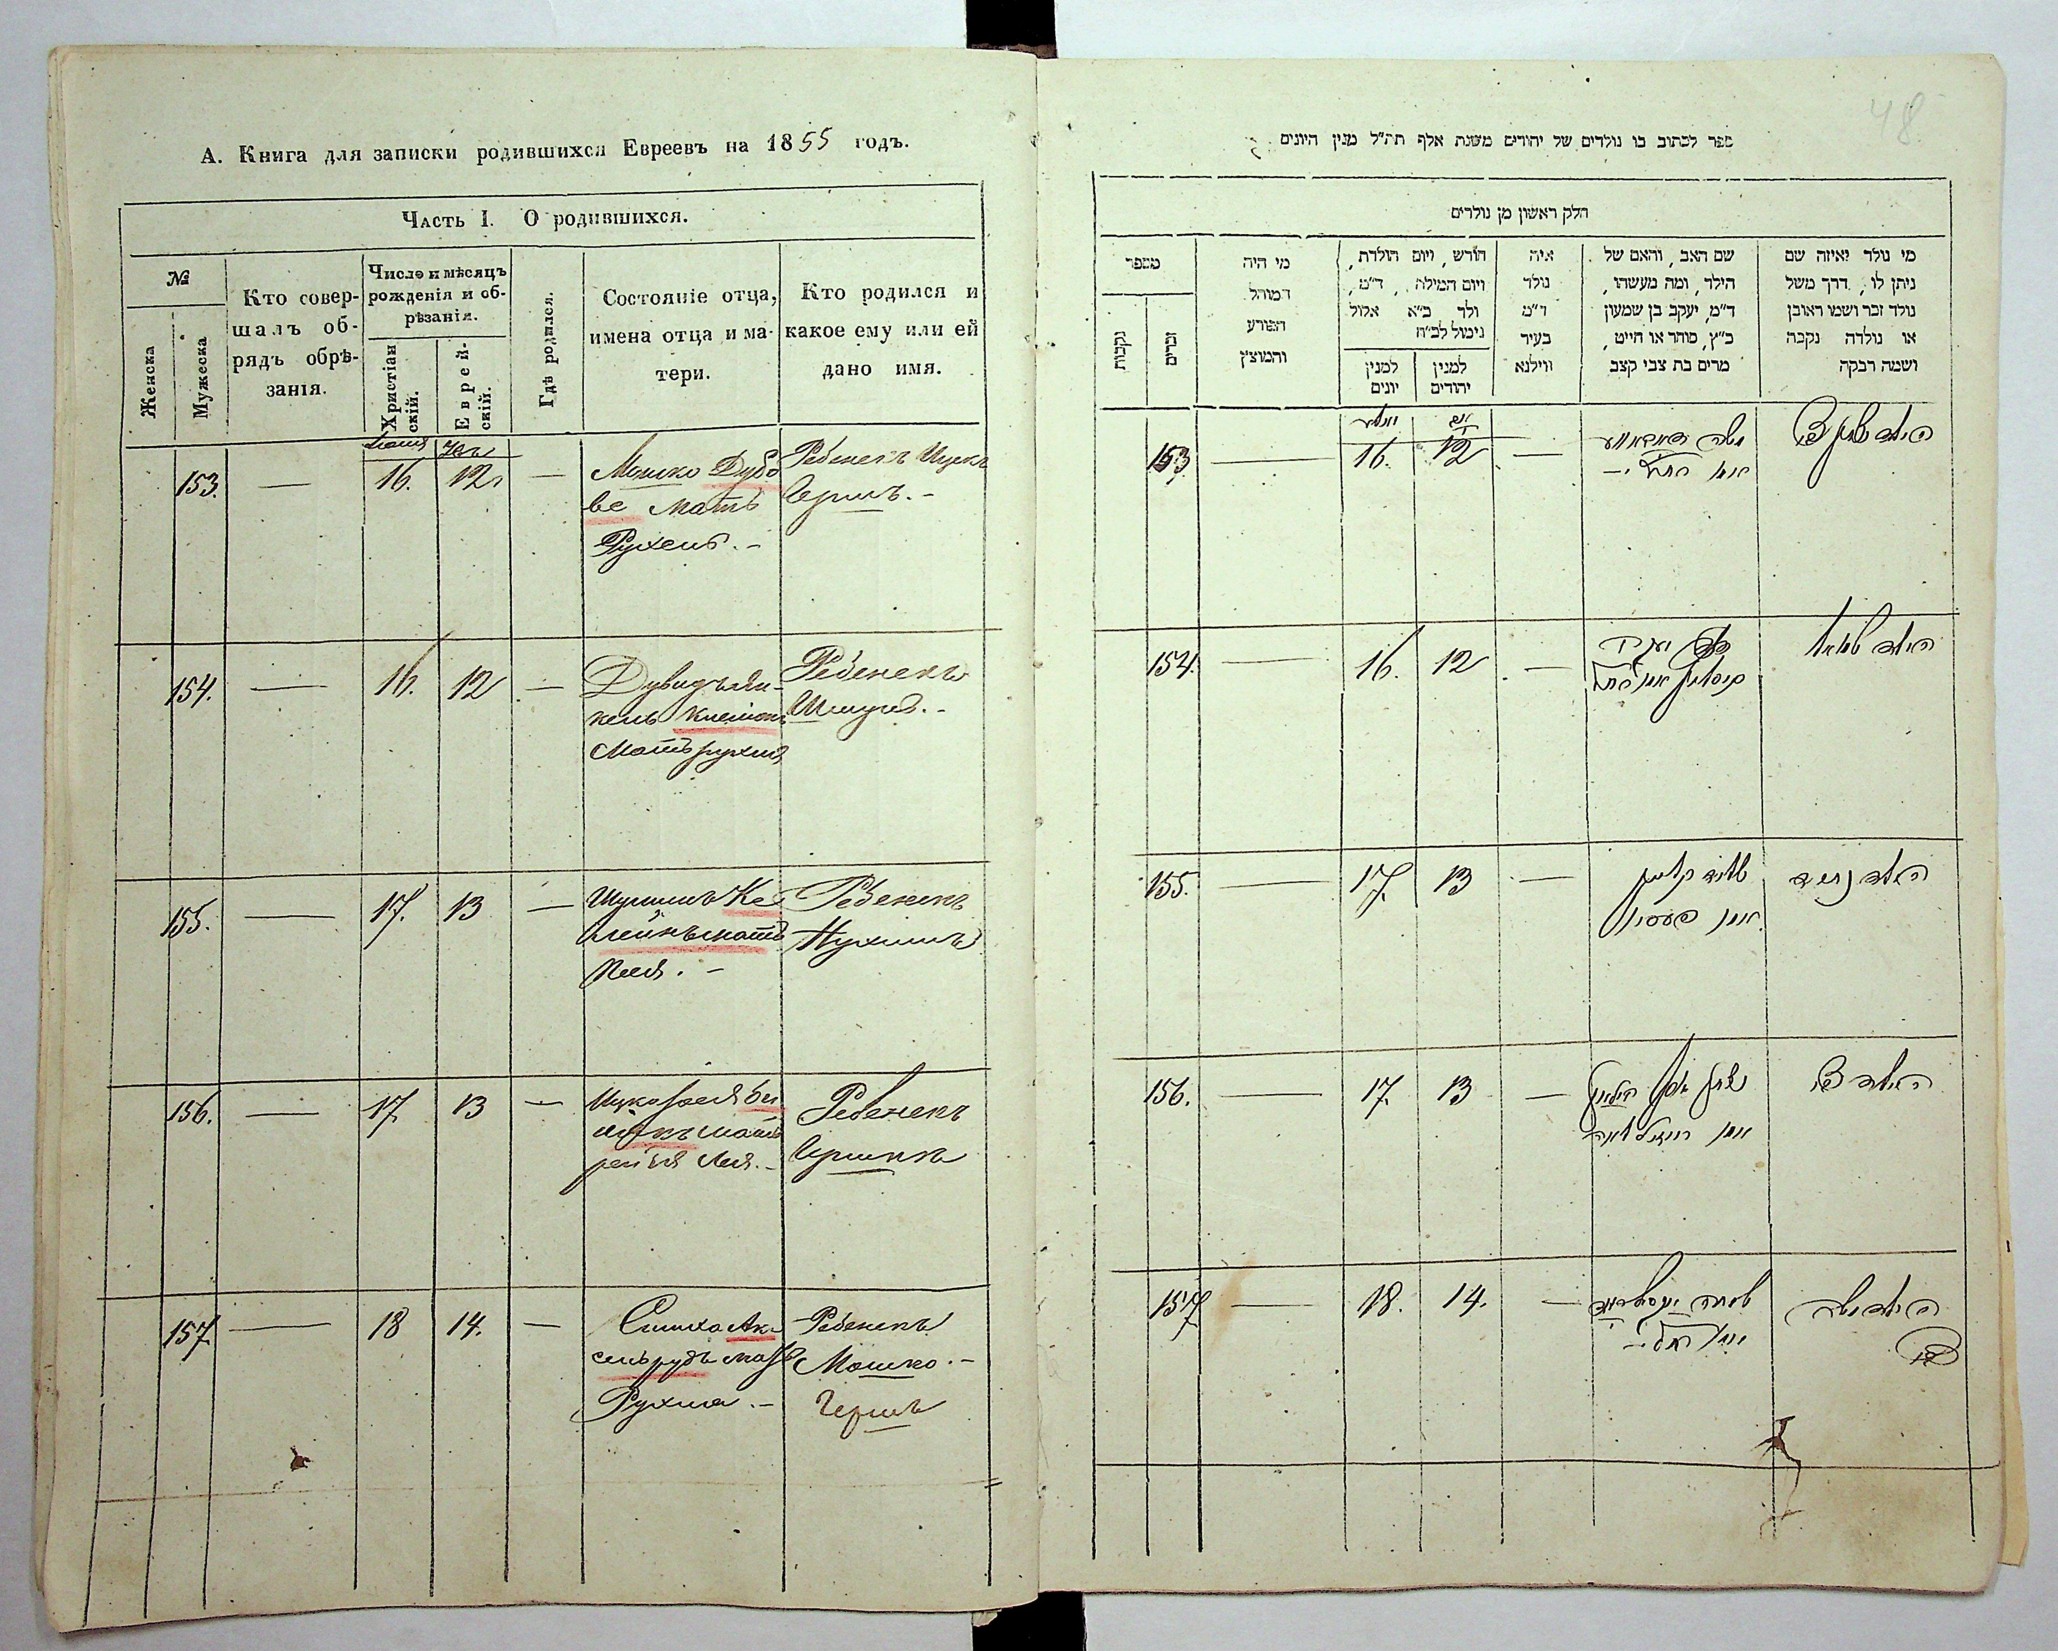 А. Книга для записки родившихся Евреевъ на 1855 годъ.
Часть I. О родившихся.
№
Женска
Мужеска
Кто совер-
шалъ об-
рядъ обрѣ-
занія.
Число и мѣсяцъ
рожденія и об-
рѣзанія.
Христіан
скій.
Еврей-
скій.
Гдѣ родился.
Состояніе отца,
имена отца и ма-
тери.
Кто родился и
какое ему или ей
дано имя.
153. — 16. 12 —
Мошко Дубо
ве мать
Рухель. –
Ребенекъ Ицекъ
Гершъ. –
154. — 16. 12 —
Дувидъ Ян-
кель
мать рухля
Ребенекъ
Шмуль. –
155. — 17. 13 —
Шулимъ Ке
лейнъ мать
Песя. –
Ребенекъ
Нухимъ
156. — 17 13 —
мать
Лея. –
Ребенекъ
Гершкъ
157 — 18 14. —
Симха Ак
сельрудъ мать
Рухля. –
Ребенекъ
Мошко. –
Гершъ
48
ספר לכתוב בו נולדים של יהודים משנת אלף תת״ל מנין היונים
חלק ראשון מן נולדים
מספר
נקבות
זכרים
מי היה
המוהל
הפורע
והמוצץ
חודש, ויום הולדת,
ויום המילה, ד״מ,
ולד כ״א אלול
נימול לכ״ח
למנין
יונים
למנין
יהודים
איה
נולד
ד״מ
בעיר
ווילנא
שם האב, והאם של
הילד, ומה מעשהו,
ד״מ, יעקב בן שמעון
כ״ץ, סוחר או חייט,
מרים בת צבי קצב
מי נולד ואיזה שם
ניתן לו, דרך משל
נולד זכר ושמו ראובן
או נולדה נקבה
ושמה רבקה
153 — 16. 12 —
משה
אמו רחל –
הילד יצחק צבי
154. — 16. 12 —
דוד יעקב
אמו רחל
הילד שמואל
155. — 17. 13 —
שלום קליין
אמו פעסיא
הילד נחום
156. — 17. 13 —
יצחק
אמו
הילד צבי
157 — 18. 14. —
שמחה אקסעלרוד
אמו רחל –
הילד משה
צבי